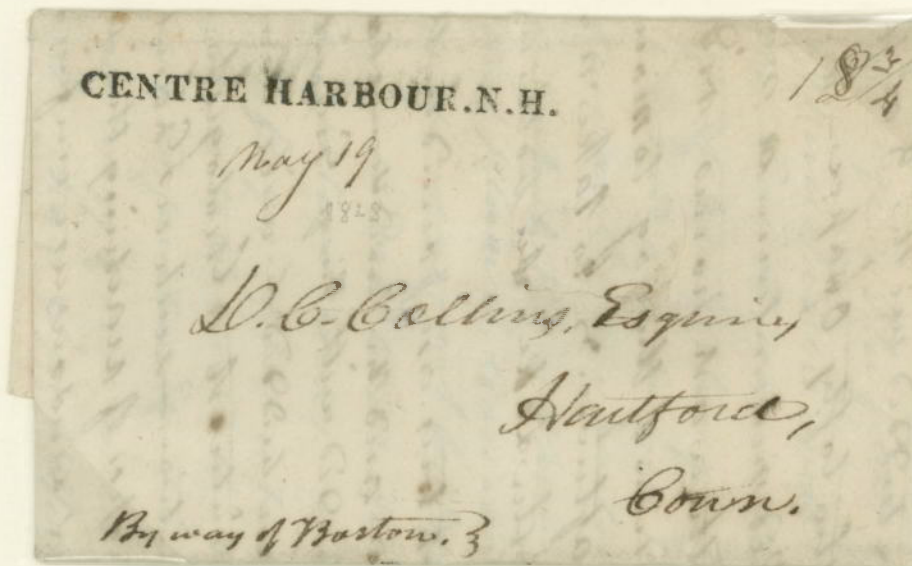 CENTRE HARBOUR.N.H.
18 3/4
May 19
1828
D. C. Collins, Esquire,
Hartford,
Conn.
By way of Boston.